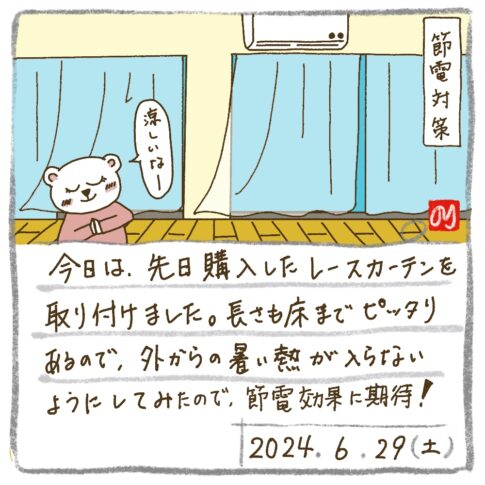 節電対策
涼しいなー
今日は、先日購入したレースカーテンを
取り付けました。長さも床までピッタリ
あるので、外からの暑い熱が入らない
ようにしてみたので、節電効果に期待!
2024.6.29(土)